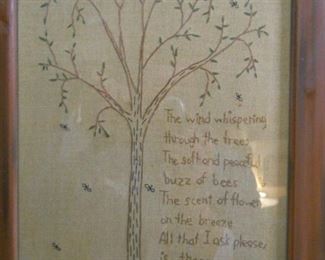 The wind whispering
through the trees
The soft and peaceful
buzz of bees
The scent of flowers
on the breeze
All that I ask please
is these